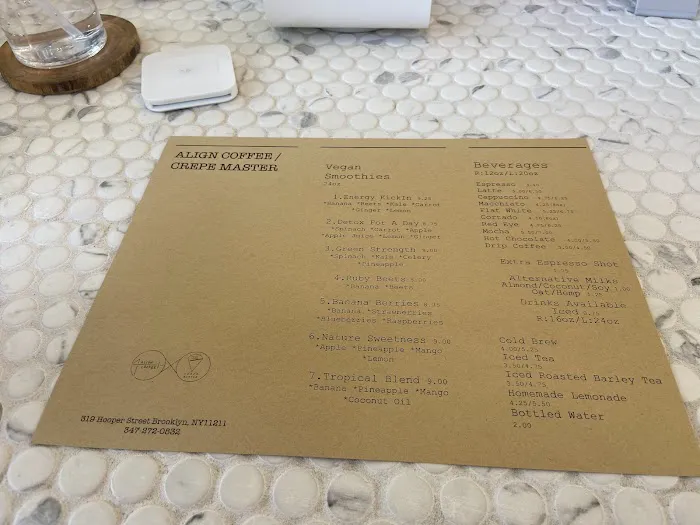 ALIGN COFFEE /
CREPE MASTER
319 Hooper Street Brooklyn, NY11211
347-272-0832
Vegan
Smoothies
24oz
1.Energy KickIn
*Banana *Beets *Kale *Carrot
*Ginger *Lemon
2.Detox For A Day 8.75
*Spinach *Carrot *Apple
*Apple Juice *Lemon *Ginger
3.Green Strength 9.00
*Spinach *Kale *Celery
*Pineapple
4.Ruby Beets
*Banana *Beets
5.Banana Berries
*Banana *Strawberries
*Blueberries *Raspberries
6.Nature Sweetness 9.00
*Apple *Pineapple *Mango
*Lemon
7.Tropical Blend 9.00
*Banana *Pineapple *Mango
*Coconut Oil
Beverages
R:12oz/L:20oz
Espresso
Latte
Cappuccino
Macchiato
Flat White
Cortado
Red Eye
Mocha
Hot Chocolate
Drip Coffee
Extra Espresso Shot
Alternative Milks
Almond/Coconut/Soy 1.00
Oat/Hemp
Drinks Available
Iced
R:16oz/L:24oz
Cold Brew
4.00/5.25
Iced Tea
3.50/4.75
Iced Roasted Barley Tea
3.50/4.75
Homemade Lemonade
4.25/5.50
Bottled Water
2.00